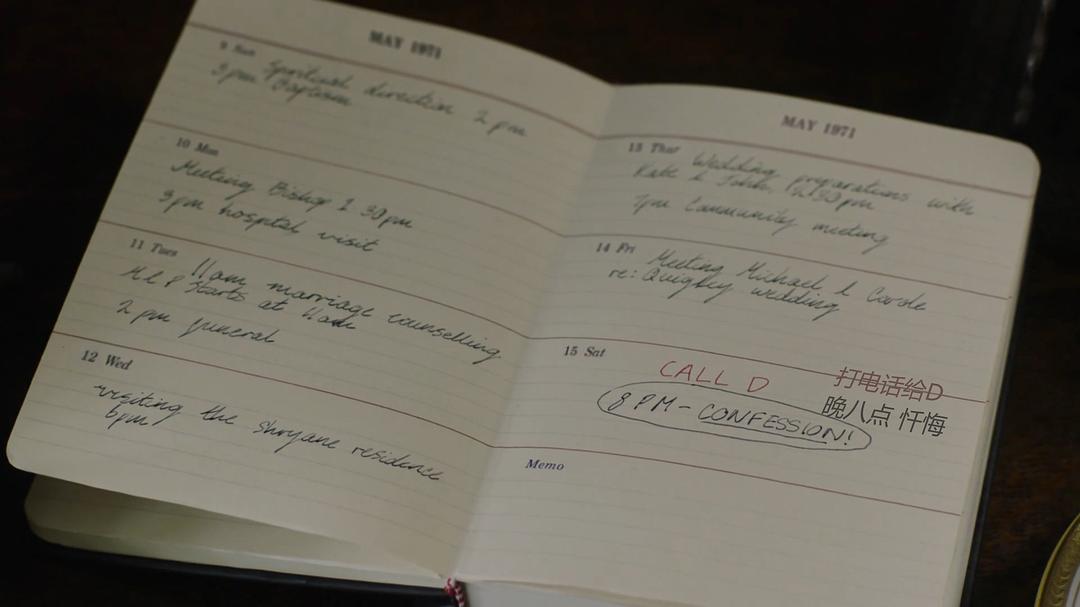 MAY 1971
9 Sun
Spiritual direction 2 pm
3pm Baptism
10 Mon
Meeting Bishop 1 30pm
3pm hospital visit
11 Tues
11am marriage counselling
starts at 11am
2 pm funeral
12 Wed
visiting the Shryane residence
6pm
MAY 1971
13 Thur
Wedding preparations with
Kate & John,
7pm Community meeting
14 Fri
Meeting Michael & Carole
re: Quigley wedding
15 Sat
CALL D
打电话给D
8 PM - CONFESSION!
晚八点 忏悔
Memo